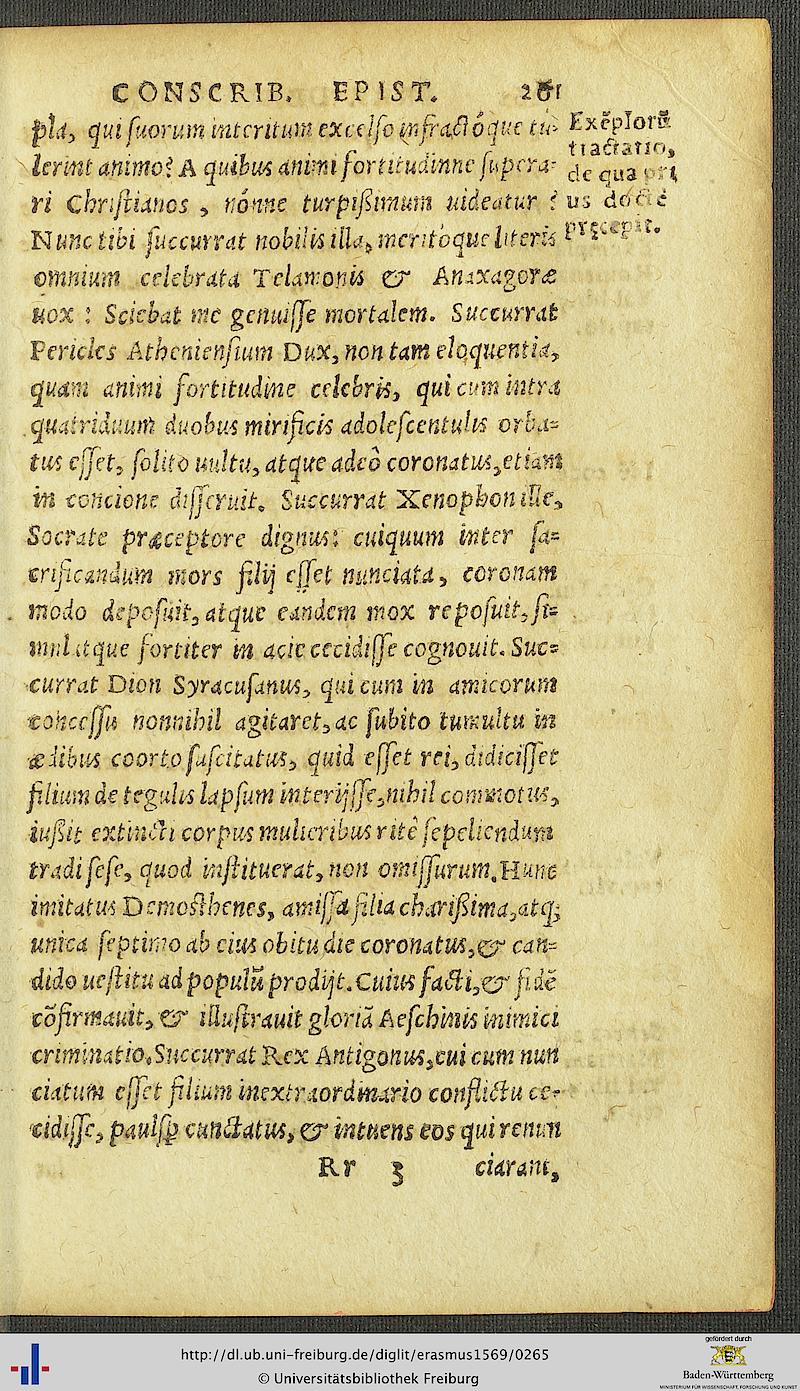 CONSCRIB. EPIST. 261
pla, qui suorum interitum excelso infractóque tu-
lerint animo? A quibus animi fortitudinne supera-
ri Christianos, nónne turpißimum uideatur?
Nunc tibi succurrat nobilis illa, meritoque literis
omnium celebrata Telamonis & Anaxagoræ
uox: Sciebat me genuisse mortalem. Succurrat
Pericles Atheniensium Dux, non tam eloquentia,
quam animi fortitudine celebris, qui cum intra
quatriduum duobus mirificis adolescentulis orba=
tus esset, solito uultu, atque adeò coronatus, etiam
in concione disseruit. Succurrat Xenophon ille,
Socrate præceptore dignus: cuiquum inter sa=
crificandum mors filij esset nunciata, coronam
modo deposuit, atque eandem mox reposuit, si=
mul atque fortiter in acie cecidisse cognouit. Suc=
currat Dion Syracusanus, qui cum in amicorum
concessu nonnihil agitaret, ac subito tumultu in
ædibus coorto suscitatus, quid esset rei, didicisset
filium de tegulis lapsum interijsse, nihil commotus,
iußit extincti corpus mulieribus ritè sepeliendum
tradi sese, quod instituerat, non omissurum. Hunc
imitatus Demosthenes, amissa filia charißima, atq;
unica septimo ab eius obitu die coronatus, & can=
dido uestitu ad populũ prodijt. Cuius facti, & fidẽ
cõfirmauit, & illustrauit gloriã Aeschinis inimici
criminatio. Succurrat Rex Antigonus, cui cum nun
ciatum esset filium inextraordinario conflictu ce-
cidisse, paulsp cunctatus, & intuens eos qui renun
Rr 3 ciarant,
Exẽplorũ
tractatio,
de qua pri
us docte
pręcepit.
http://dl.ub.uni-freiburg.de/diglit/erasmus1569/0265
© Universitätsbibliothek Freiburg
gefördert durch
Baden-Württemberg
MINISTERIUM FÜR WISSENSCHAFT, FORSCHUNG UND KUNST